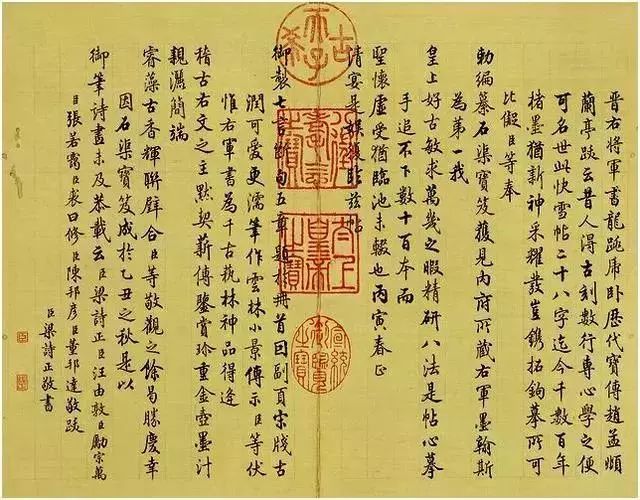 晉右將軍書龍跳虎卧歷代寶傳趙孟頫
蘭亭跋云昔人得古刻數行專心學之便
可名世此快雪帖二十八字迄今千數百年
楮墨猶新神采耀發豈鐫拓鉤摹所可
比儗臣等奉
勅編纂石渠寶笈獲見內府所藏右軍墨翰斯
為第一我
皇上好古敏求萬幾之暇精研八法是帖心摹
手追不下數十百本而
聖懷虛受猶臨池未輟也丙寅春正
清宴是娛復臨茲帖
御製七言斷句五章題於冊首因副頁宋牋古
潤可愛更濡筆作雲林小景傳示臣等伏
惟右軍書為千古藝林神品得逢
稽古右文之主默契薪傳鑒賞珍重金壺墨汁
親灑簡端
睿藻古香輝聯璧合臣等敬觀之餘曷勝慶幸
因石渠寶笈成於乙丑之秋是以
御筆詩畫未及恭載云臣梁詩正臣汪由敦臣勵宗萬
臣張若靄臣裘曰修臣陳邦彥臣董邦達敬跋
臣梁詩正敬書
古希天子
太上皇帝之寶
宣統御覽之寶